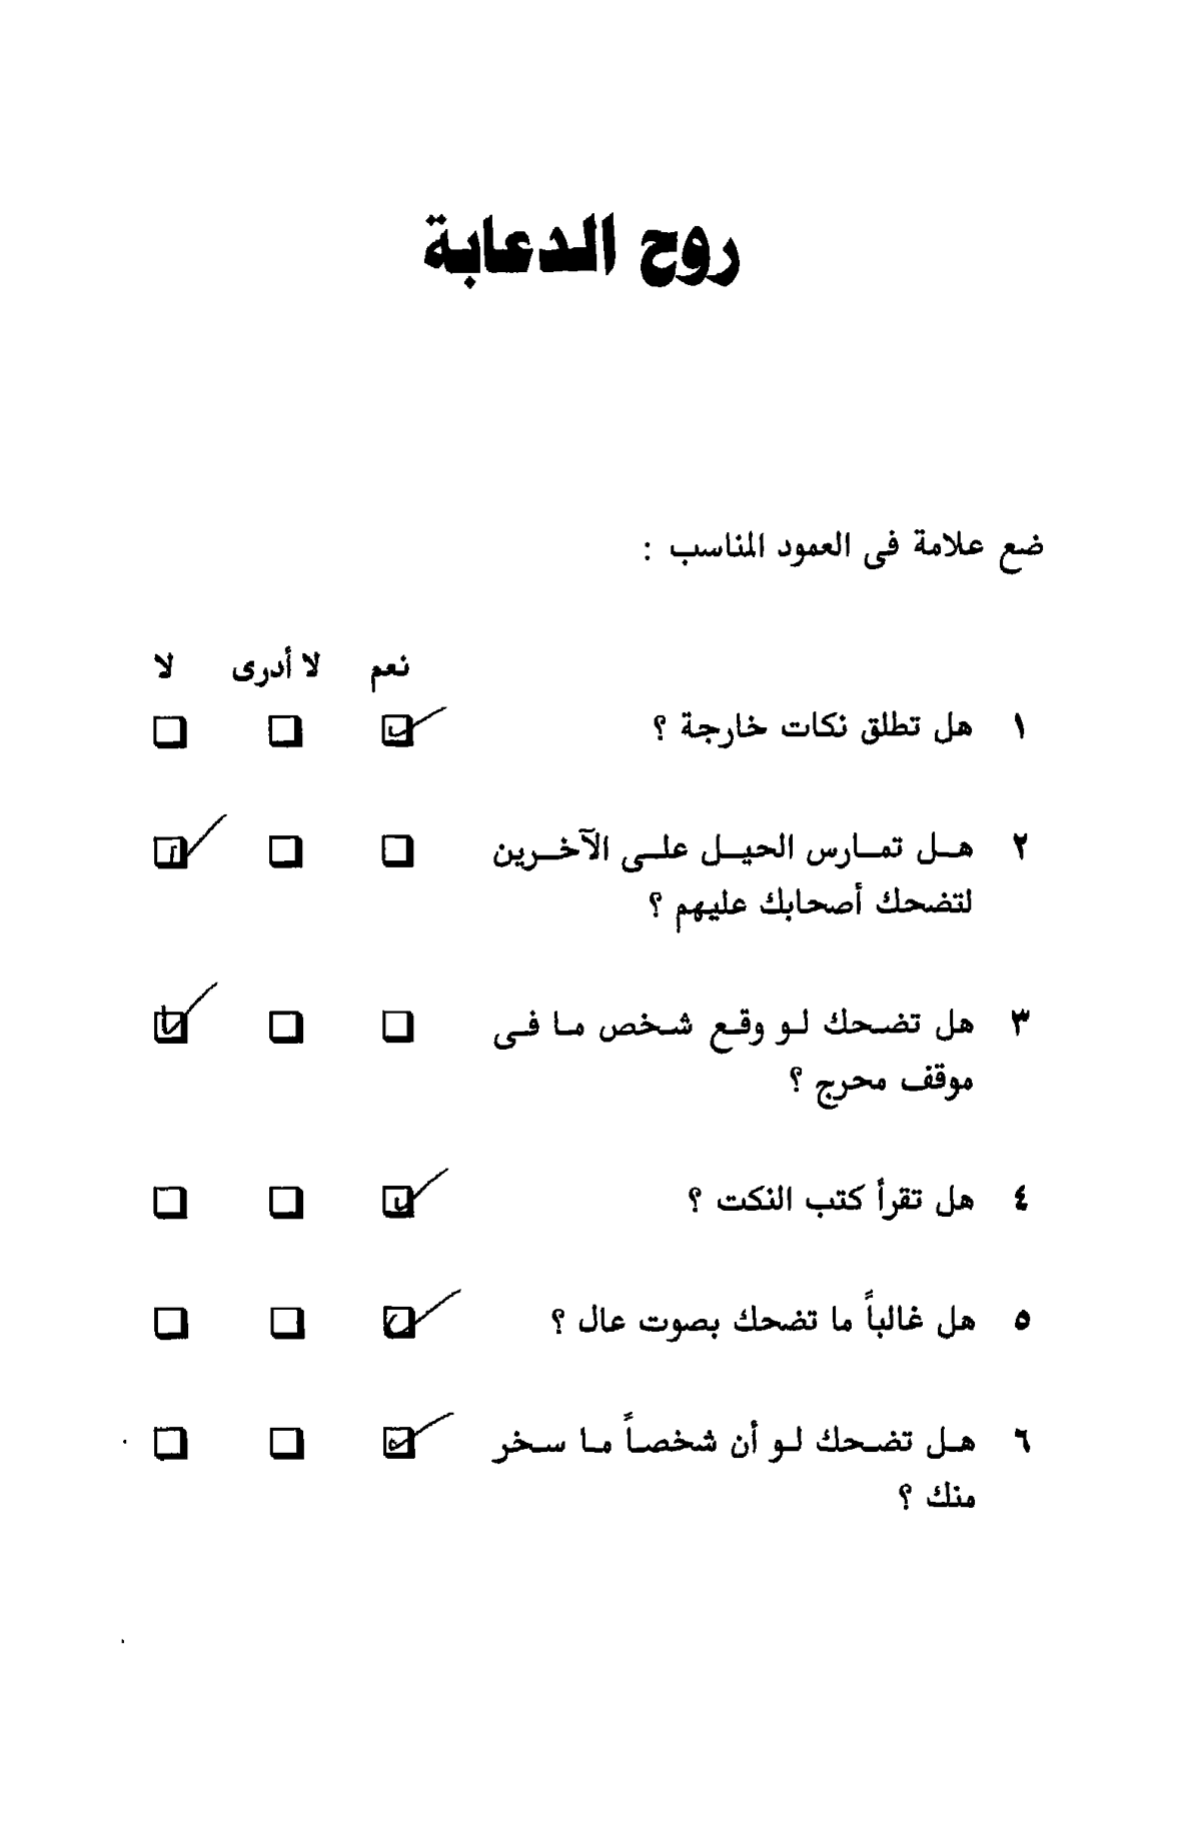 روح الدعابة
ضع علامة فى العمود المناسب :
نعم لا أدرى لا
١ هل تطلق نكات خارجة ؟
٢ هل تمارس الحيل على الآخرين
لتضحك أصحابك عليهم ؟
٣ هل تضحك لو وقع شخص ما فى
موقف محرج ؟
٤ هل تقرأ كتب النكت ؟
٥ هل غالباً ما تضحك بصوت عال ؟
٦ هل تضحك لو أن شخصاً ما سخر
منك ؟